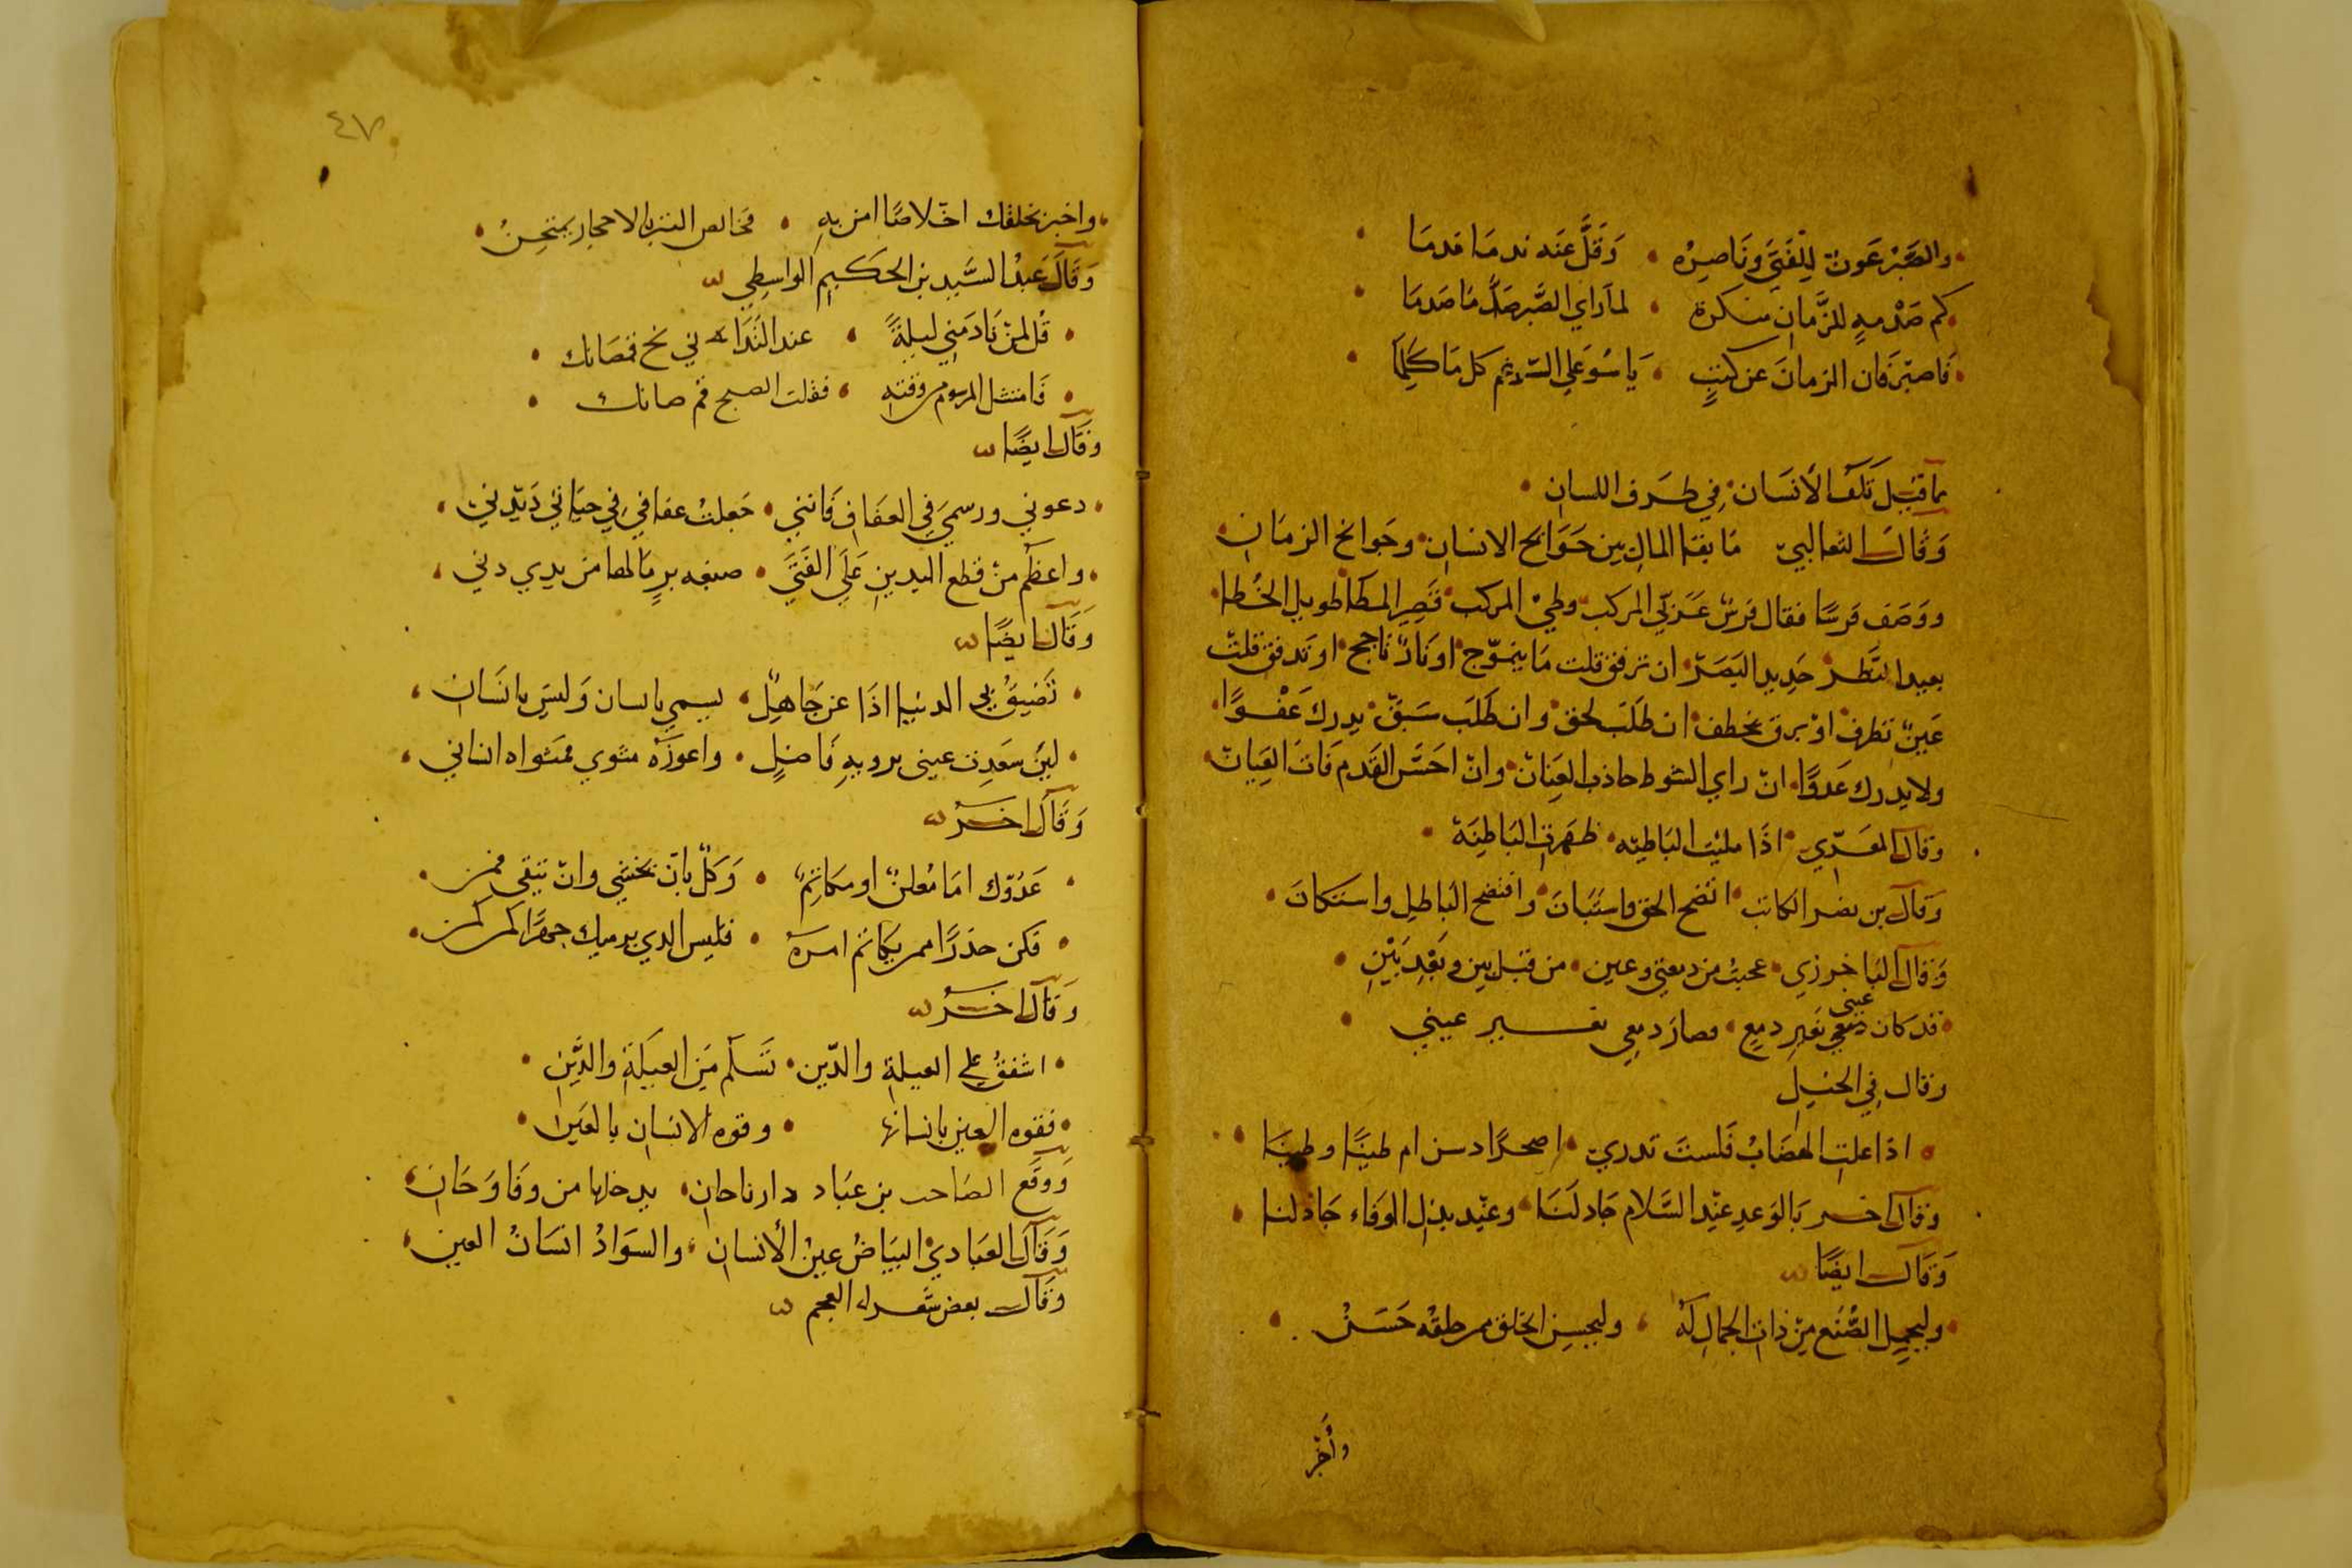 والصَّبْر عَونٌ لِلْفَتَى ونَاصِرُه • وَقَلَّ عَنْد ندمَا قدمَا •
كم صَدْمهٍ للزَّمَانِ منكرة • لما راي الصَّبر صَدَّ مَا صَدمَا •
فَاصبّر فان الزمانَ عن كثبٍ • يَاسُو عَلي الرغم كل مَا كَلِمَا •
مما قيل تَلَفُ الأنسَان • فِي طَرف اللسان •
وَقالَ الثعالبيّ مَا بقا المال بين حَوَايج الانسان • وجَوايح الزمَان •
ووَصَف فرسًا فقال فرسٌ عَربّي المركب • وطيْ المركب • قَصِير المطَا طويل الخُطا •
بعيد النَّظر • حَدِيد البَصَر • ان ترفق قلت مَا يتموّج • او نَارٌ تاجج • او تدفق قلت
عَينٌ تطرف • اوْ برق يخطف • ان طلَبَ لحق • وان طَلَب سَبقَ • يدرك عَفْوًا •
ولا يدرك عَدوًا • انْ راي الشوط جاذب العِنَانْ • وانْ احَسَّ القدم فَات العِيَانْ •
وقال المعَرّي • اذَا مليْت البَاطيه • ظهَرتِ البَاطِنَة •
وَقالَ بن نصر الكاتب • اتضح الحق واستَبَانَ • وافتضح الباطل واستكَانَ •
وَقالَ البَاخرزي • عجبْتُ من دمعتي وعين • من قبل بين وبَعْدِ بَيْنِ •
• قد كان عيني بغير دمعٍ • فصارَ دمعِي بغــير عيني •
وقال في الخيل
• اذا علتِ الهضَابْ فَلستَ تدري • اصخرًا دسن ام طينًا وطينَا •
وقال اخر بَالوَعدِ عنْد السَّلام جَادلَنَا • وعنْد بذل الوَفَاء جَادلنا •
وَقَالَ ايضًا
• وليجمِل الصُّنْع مِنْ ذات الجمال لَهُ • وليحسِن الخلق من خلقُه حَسَنْ •
وأخبر
٤٧
• واخبر بخلقك اخْلاصًا امن بهِ • فخالص التبر بالاحجار يمتحِنُ •
وَقَالَ عَبدُ السَّيد بن الحكيمِ الواسِطي
• قُل لمنْ نَادَمَنِي ليلةً • عند النَدَا نح قمصَانك •
• فَامتثل المرسوم من وقته • فقلت الصبح قم صانك •
وَقَالَ ايضًا
• دعوني ورسميَ في العفَافِ فَانني • جَعلتُ عفافي فِي حيَاتي دَيْدني •
• واعظم منْ قطع اليدينِ عَلَى الفَتَى • صنيعه برٍ نَالها من يدي دني •
وَقَالَ ايضًا
• تَضيقُ بي الدنيا اذَا عن جَاهِلٌ • يسمي بانسان وَليسَ بانسَان •
• لين سعَدِت عيني برويهِ فاضلٍ • واعوزَهُ مثوي فمثواه انساني •
وَقَالَ اخــرُ
• عَدُوّك امَا مُعلنٌ او مكاتِمٌ • وَكلٌ بانْ يخشي وانْ يتقي قمن •
• فكن حذرًا ممن يكاتم امرهُ • فليس الذي يرميك جهرًا كمن كمن •
وَقَالَ اخــرُ
• اشفقْ علي العيلةِ والدّين • تَسْلَم مِنَ العيَلةِ والدَّينِ •
• فقوه العين بانسانها • وقوه الانسَان بالعَينِ •
وَوقَع الصَاحب بن عبَاد دارنا خان • يدخلها من وفَا وَخَان •
وَقَالَ العبَاديُ البيَاضُ عينُ الأنسان • والسوَادُ انسَانُ العين •
وَقَالَ بعض شعراء العجم